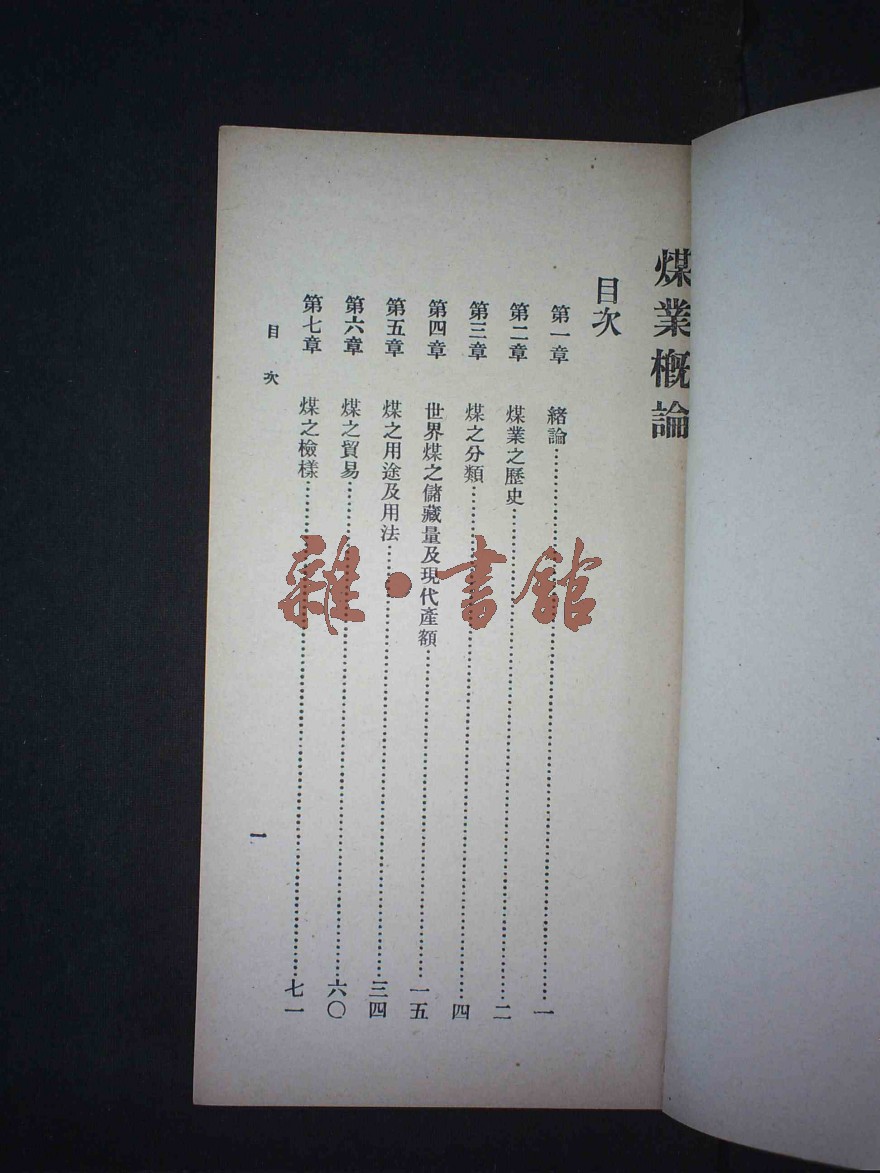 煤業概論
目次
第一章 緒論 一
第二章 煤業之歷史 二
第三章 煤之分類 四
第四章 世界煤之儲藏量及現代產額 一五
第五章 煤之用途及用法 三四
第六章 煤之貿易 六〇
第七章 煤之檢樣 七一
目次 一
雜·書館